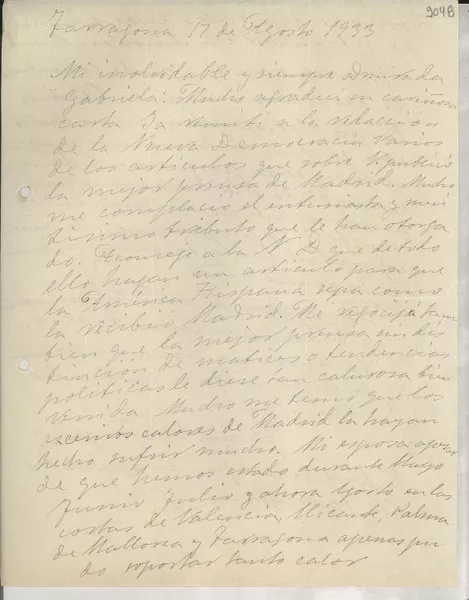 9048
Tarragona 17 de Agosto 1933
Mi inolvidable y siempre admirada
Gabriela: Mucho agradecí su cariñosa
carta Ya remití a la redacción
de la Nueva Democracia varios
de los artículos que sobre V. publicó
la mejor prensa de Madrid. Mucho
me complació el entusiasta y
tributo que le han otorga
do. Aconsejé a la N D que de todo
ello hagan un artículo para que
la América Hispana sepa como
la recibió Madrid. Me regocijó tam
bien que la mejor prensa sin dis
tinción de matices o tendencias
políticas le dieran calurosa bien
venida Mucho me temo que los
calores de Madrid la hayan
hecho sufrir mucho. Mi esposa apesar
de que hemos estado durante Mayo
Junio Julio y ahora Agosto en las
costas de Valencia, Alicante, Palma
de Mallorca y Tarragona apenas pu
do soportar tanto calor